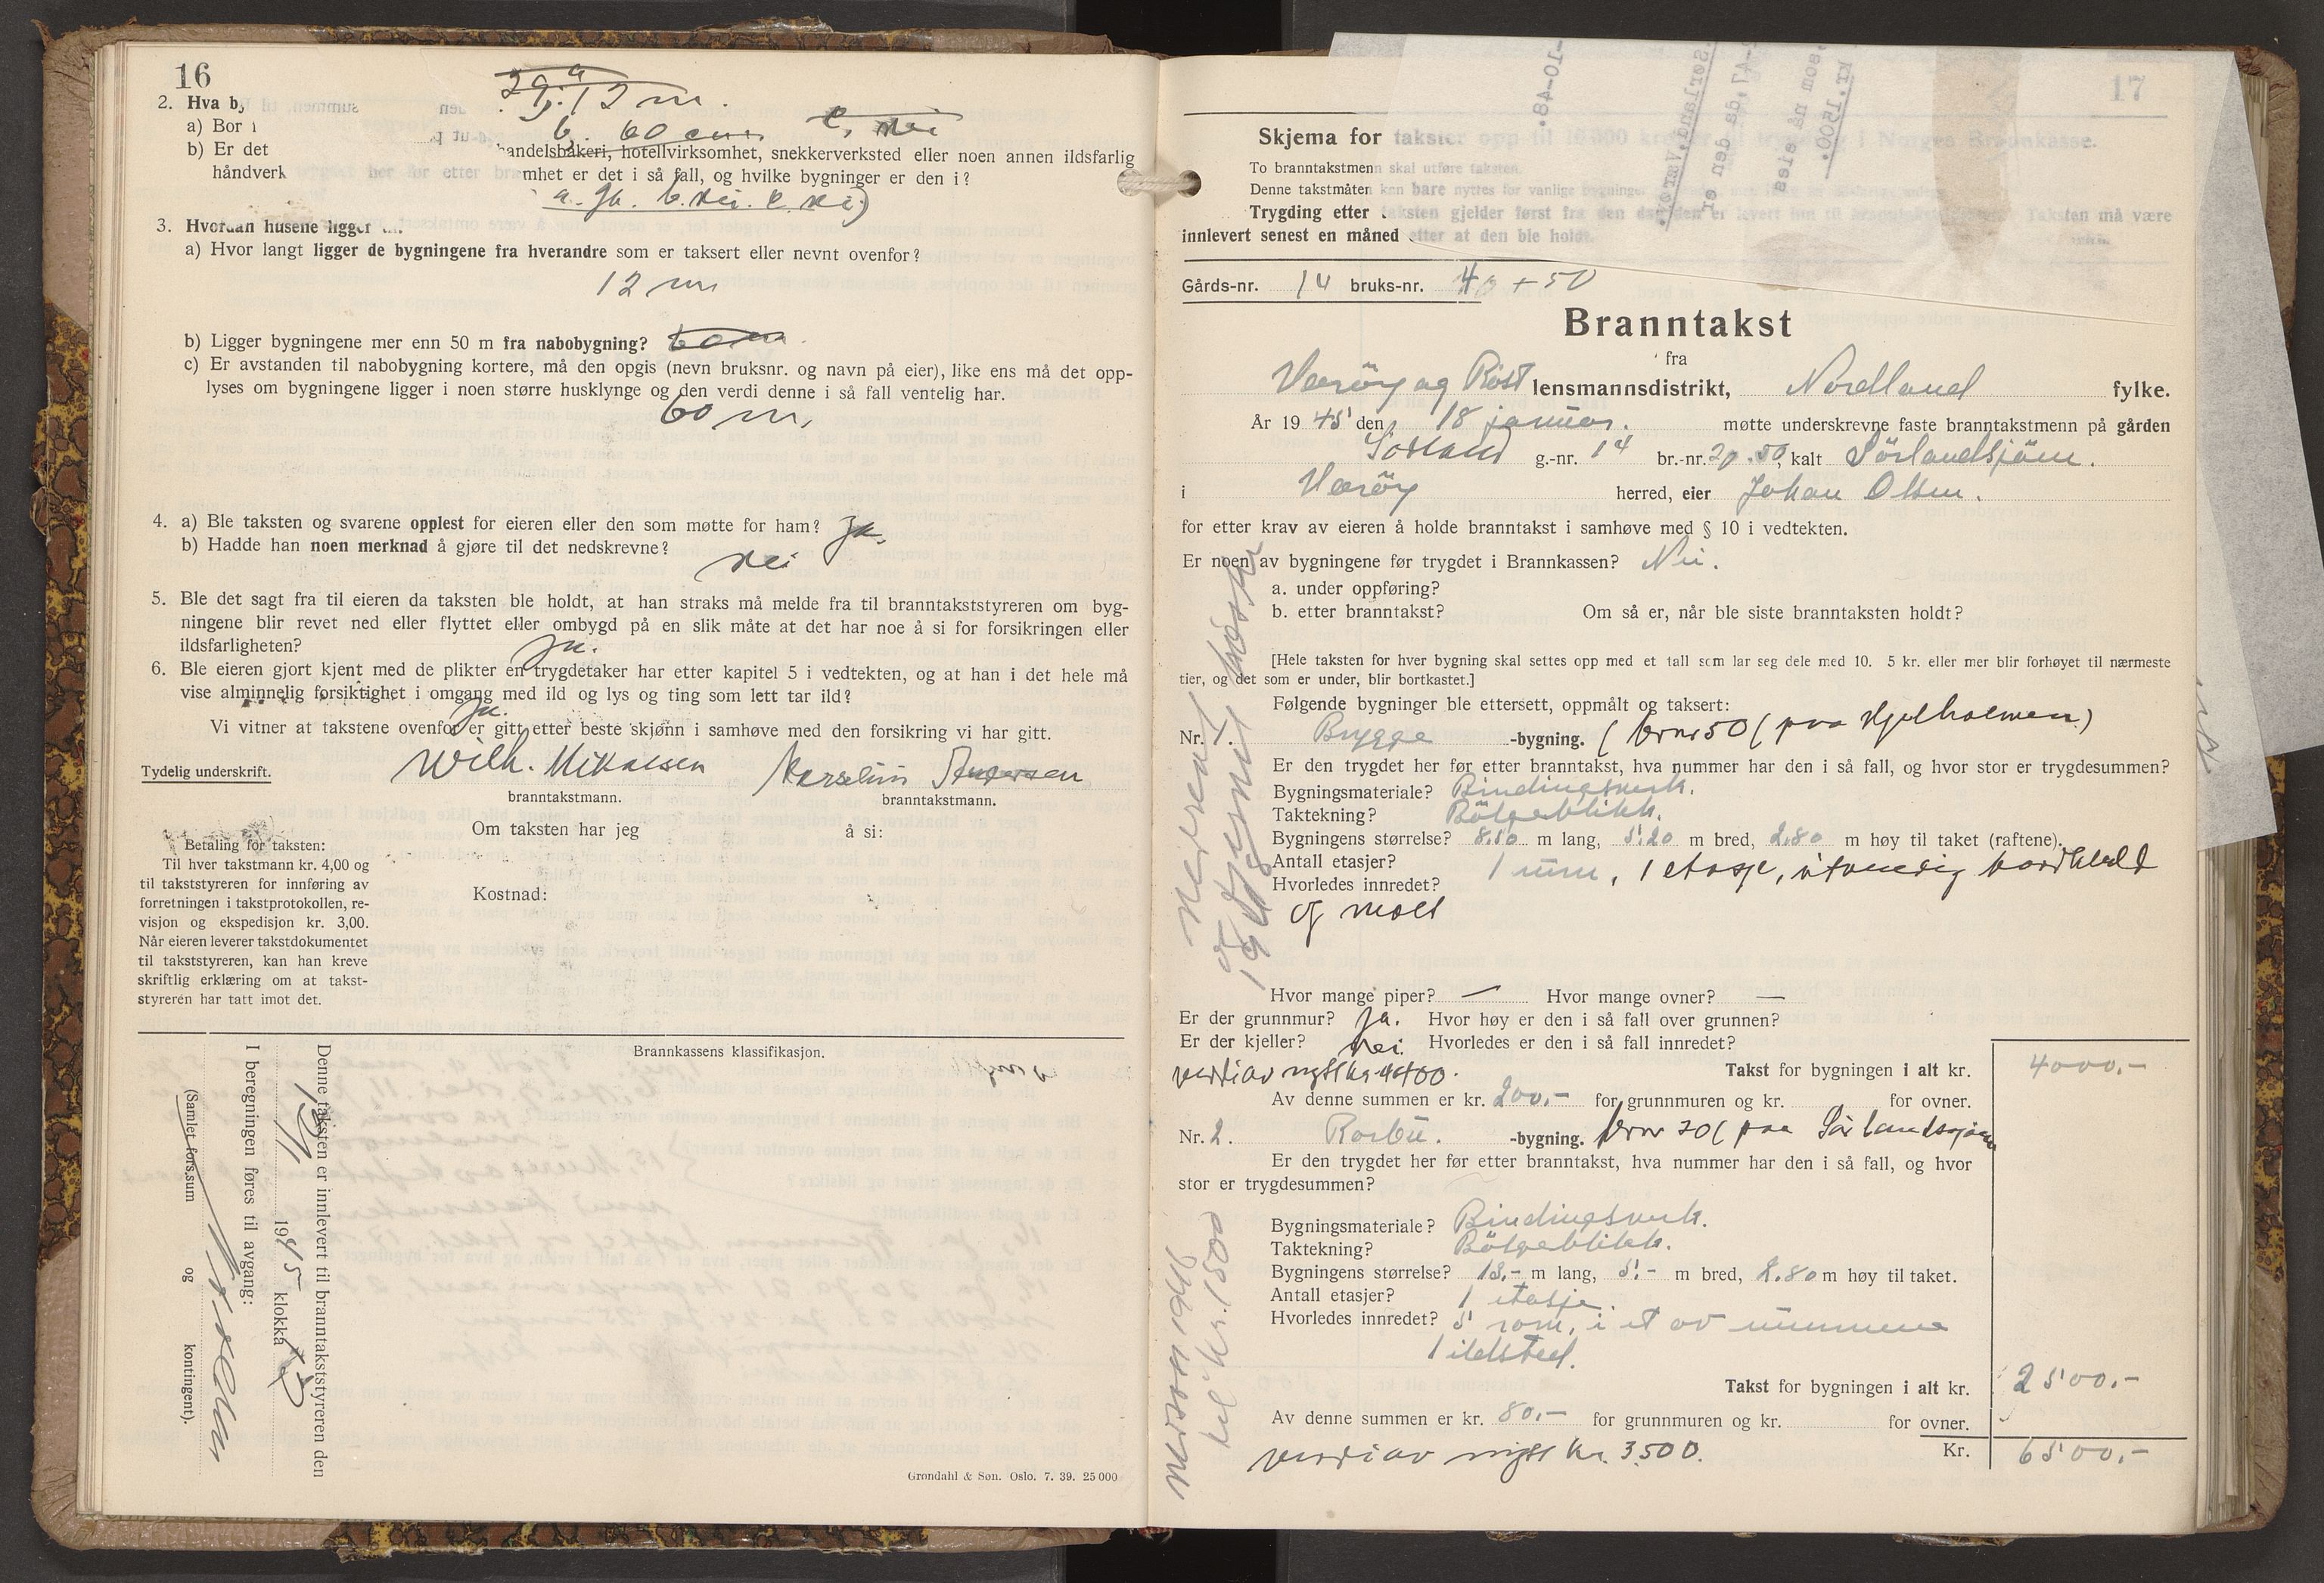 16
29. a 12 m.
2. Hva b
b. 60 cm. c. nei
a) Bor
b) Er det handelsbakeri, hotellvirksomhet, snekkerverksted eller noen annen ildsfarlig
håndverk mhet er det i så fall, og hvilke bygninger er den i?
a. ja. b. nei. c. nei)
3. Hvordan husene ligger
a) Hvor langt ligger de bygningene fra hverandre som er taksert eller nevnt ovenfor?
12 m
b) Ligger bygningene mer enn 50 m fra nabobygning? 60 m
c) Er avstanden til nabobygning kortere, må den opgis (nevn bruksnr. og navn på eier), like ens må det opp-
lyses om bygningene ligger i noen større husklynge og den verdi denne i så fall ventelig har.
60 m.
4. a) Ble taksten og svarene opplest for eieren eller den som møtte for ham? Ja.
b) Hadde han noen merknad å gjøre til det nedskrevne?
nei
5. Ble det sagt fra til eieren da taksten ble holdt, at han straks må melde fra til branntakststyreren om byg-
ningene blir revet ned eller flyttet eller ombygd på en slik måte at det har noe å si for forsikringen eller
ildsfarligheten?
Ja.
6. Ble eieren gjort kjent med de plikter en trygdetaker har etter kapitel 5 i vedtekten, og at han i det hele må
vise alminnelig forsiktighet i omgang med ild og lys og ting som lett tar ild?
Ja.
Vi vitner at takstene ovenfor er gitt etter beste skjønn i samhøve med den forsikring vi har gitt.
Tydelig underskrift. Wilh. Mikalsen
branntakstmann. branntakstmann.
Om taksten har jeg å si:
Betaling for taksten:
Til hver takstmann kr. 4,00 og
til takststyreren for innføring av
forretningen i takstprotokollen, re-
visjon og ekspedisjon kr. 3,00.
Når eieren leverer takstdokumentet
til takststyreren, kan han kreve
skriftlig erklæring om at takst-
styreren har tatt imot det.
Kostnad:
Brannkassens klassifikasjon.
Denne taksten er innlevert til branntakststyreren den
1945 klokka
I beregningen føres til avgang:
(Samlet fors.sum og kontingent).
Grøndahl & Søn. Oslo. 7. 39. 25 000
17
-10-48.
Sørland, Værøy.
kr. 1500.
Skjema for takster opp til 10 000 kroner i trygding i Norges Brannkasse.
To branntakstmenn skal utføre taksten.
Denne takstmåten kan bare nyttes for vanlige bygninger
Trygding etter taksten gjelder først fra den dag den er levert inn til branntakststyreren. Taksten må være
innlevert senest en måned etter at den ble holdt.
Gårds-nr. 14 bruks-nr. 40 + 50
Branntakst
fra
Værøy og Røst lensmannsdistrikt, Nordland fylke.
År 1945 den 18 januar. møtte underskrevne faste branntakstmenn på gården
Sørland g.-nr. 14 br.-nr. 20.50, kalt Sörlandsjöen.
i Værøy herred, eier Johan Olsen.
for etter krav av eieren å holde branntakst i samhøve med § 10 i vedtekten.
Er noen av bygningene før trygdet i Brannkassen? Nei.
a. under oppføring?
b. etter branntakst? Om så er, når ble siste branntaksten holdt?
[Hele taksten for hver bygning skal settes opp med et tall som lar seg dele med 10. 5 kr. eller mer blir forhøyet til nærmeste
tier, og det som er under, blir bortkastet.]
Følgende bygninger ble ettersett, oppmålt og taksert:
Nr. 1. Brygge -bygning. (brnr 50 (paa Kjelholmen)
Er den trygdet her før etter branntakst, hva nummer har den i så fall, og hvor stor er trygdesummen?
Bygningsmateriale? Bindingsverk.
Taktekning? Bölgeblikk.
Bygningens størrelse? 8.50 m lang, 5.20 m bred, 2.80 m høy til taket (raftene).
Antall etasjer? 1 rum, 1 etasje, utvendig bordkledd
Hvorledes innredet?
og malt
Hvor mange piper? — Hvor mange ovner? —
Er der grunnmur? Ja. Hvor høy er den i så fall over grunnen?
Er der kjeller? Nei. Hvorledes er den i så fall innredet?
verdi av nytt kr. 4400. Takst for bygningen i alt kr. 4000.-
Av denne summen er kr. 200.- for grunnmuren og kr. for ovner.
Nr. 2. Rorbu. -bygning. brnr 20 (paa Sørlandsjøen
Er den trygdet her før etter branntakst, hva nummer har den i så fall, og hvor
stor er trygdesummen?
Bygningsmateriale? Bindingsverk.
Taktekning? Bölgeblikk.
Bygningens størrelse? 13.- m lang, 5.- m bred, 2.80 m høy til taket.
Antall etasjer? 1 etasje.
Hvorledes innredet? 5 rom, i et av rummene
1 ildsted.
Takst for bygningen i alt kr. 2500.-
Av denne summen er kr. 80.- for grunnmuren og kr. for ovner.
verdi av nytt kr. 3500. Kr. 6500.-
Nedsatt 1946
til kr. 1500